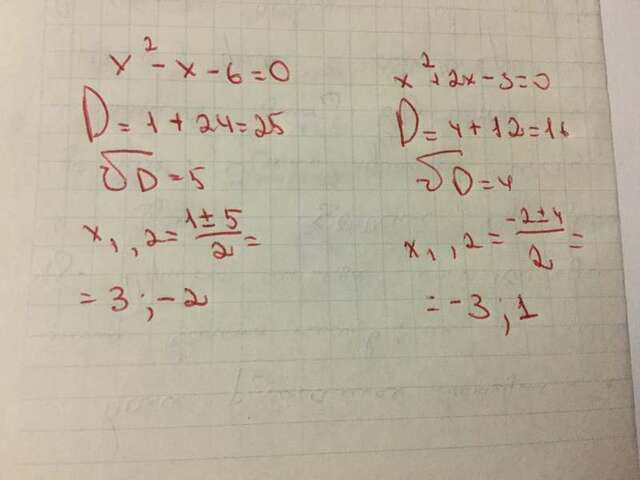 x² - x - 6 = 0
D = 1 + 24 = 25
√D = 5
x₁,₂ = (1 ± 5)/2 =
= 3 ; -2
x² + 2x - 3 = 0
D = 4 + 12 = 16
√D = 4
x₁,₂ = (-2 ± 4)/2 =
= -3 ; 1